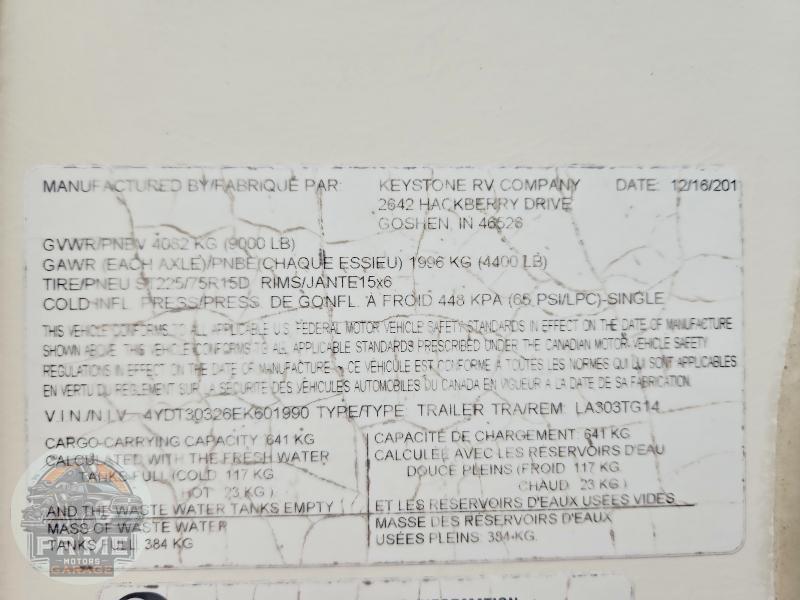 MANUFACTURED BY/FABRIQUE PAR: KEYSTONE RV COMPANY DATE: 12/16/201
2642 HACKBERRY DRIVE
GOSHEN, IN 46526
GVWR/PNBV 4082 KG (9000 LB)
GAWR (EACH AXLE)/PNBE(CHAQUE ESSIEU) 1996 KG (4400 LB)
TIRE/PNEU ST225/75R15D RIMS/JANTE15x6
COLD INFL. PRESS/PRESS. DE GONFL. A FROID 448 KPA (65 PSI/LPC)-SINGLE
THIS VEHICLE CONFORMS TO ALL APPLICABLE U.S. FEDERAL MOTOR VEHICLE SAFETY STANDARDS IN EFFECT ON THE DATE OF MANUFACTURE
SHOWN ABOVE. THIS VEHICLE CONFORMS TO ALL APPLICABLE STANDARDS PRESCRIBED UNDER THE CANADIAN MOTOR VEHICLE SAFETY
REGULATIONS IN EFFECT ON THE DATE OF MANUFACTURE - CE VÉHICULE EST CONFORME A TOUTES LES NORMES QUI LUI SONT APPLICABLES
EN VERTU DU REGLEMENT SUR LA SECURITE DES VÉHICULES AUTOMOBILES DU CANADA EN VIGUEUR A LA DATE DE SA FABRICATION.
V.I.N./N.I.V.- 4YDT30326EK601990 TYPE/TYPE TRAILER TRA/REM: LA303TG14
CARGO-CARRYING CAPACITY 641 KG
CALCULATED WITH THE FRESH WATER
TANKS FULL (COLD 117 KG
HOT 23 KG )
AND THE WASTE WATER TANKS EMPTY
MASS OF WASTE WATER
TANKS FULL 384 KG
CAPACITÉ DE CHARGEMENT: 641 KG
CALCULÉE AVEC LES RESERVOIRS D'EAU
DOUCE PLEINS (FROID 117 KG
CHAUD 23 KG )
ET LES RESERVOIRS D'EAUX USÉES VIDES
MASSE DES RESERVOIRS D'EAUX
USÉES PLEINS: 384-KG.
FAME
MOTORS
GARAGE